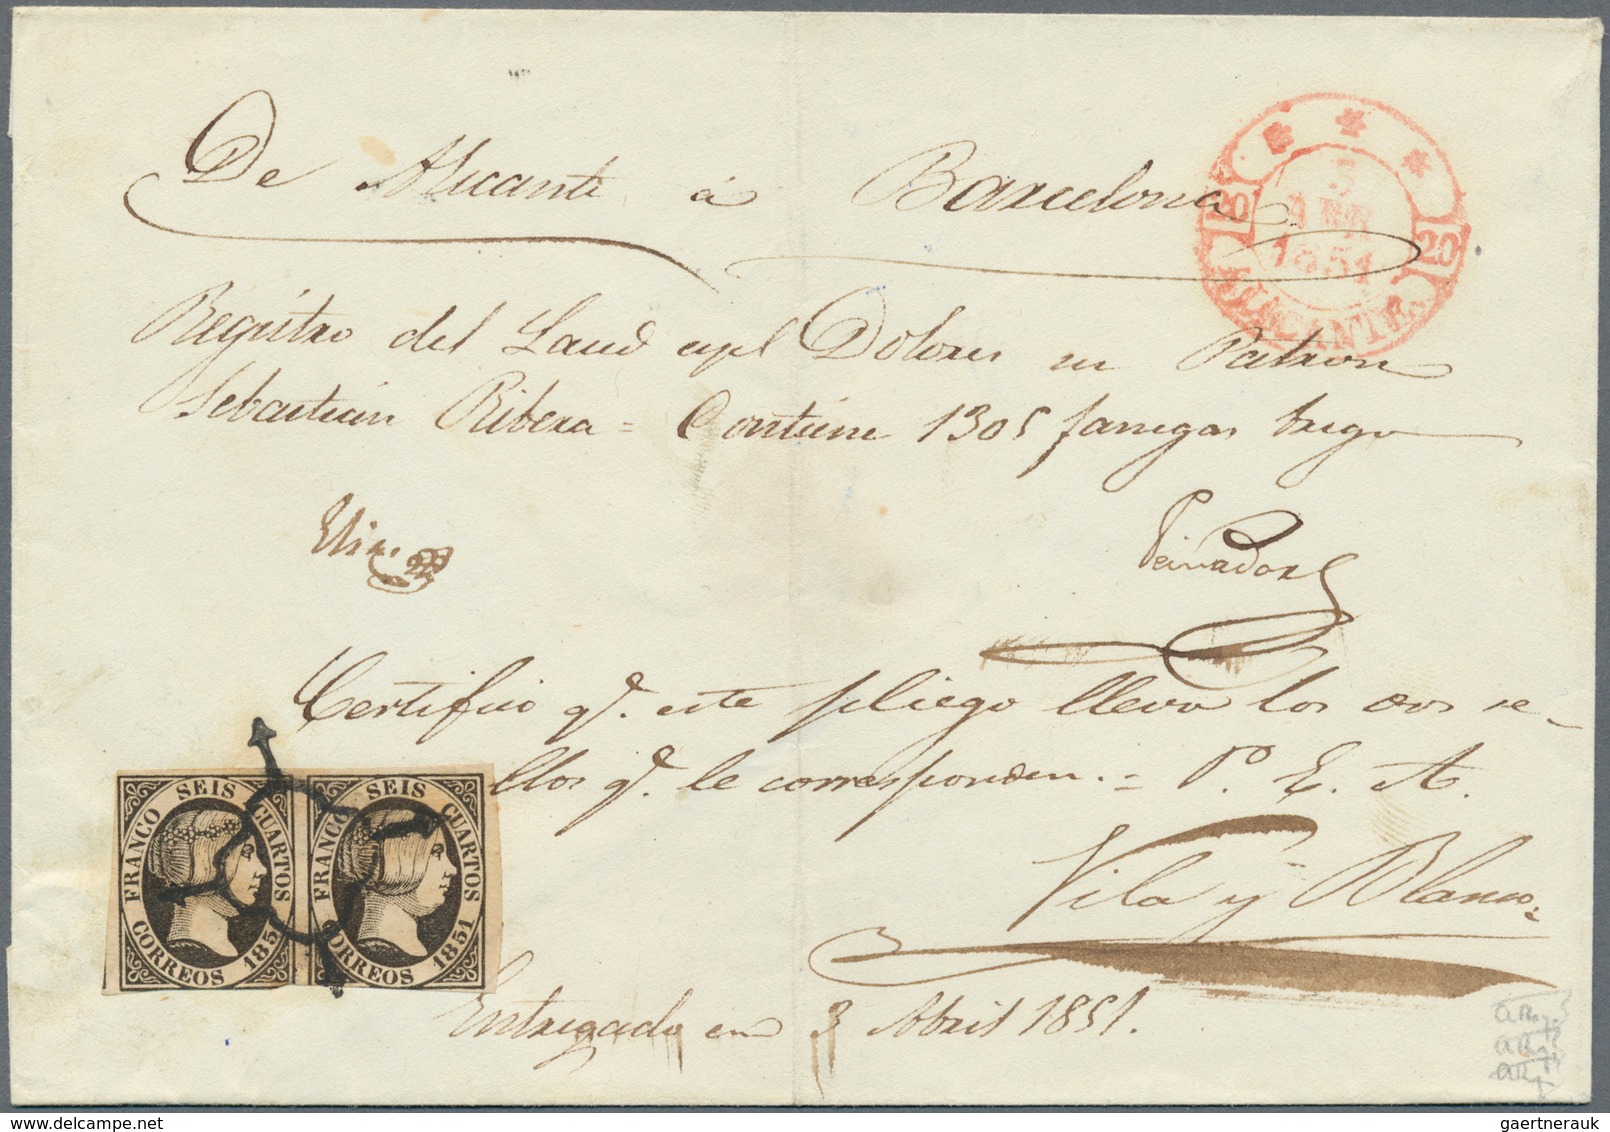 De Alicante á Barcelona
3
ABR
1851
20
20
ALICANTE.
Registro del Laud espl Dolores su Patron
Sebastian Ribera = Contiene 1305 fanegas trigo
Peinador
Certifico q.e este pliego lleva los dos se-
llos q.e le corresponden. = P. E. A.
Vila y Blanco
FRANCO SEIS CUARTOS
CORREOS 185
FRANCO SEIS CUARTOS
CORREOS 1851
Entregado en 3 Abril 1851.
gaertnerauk